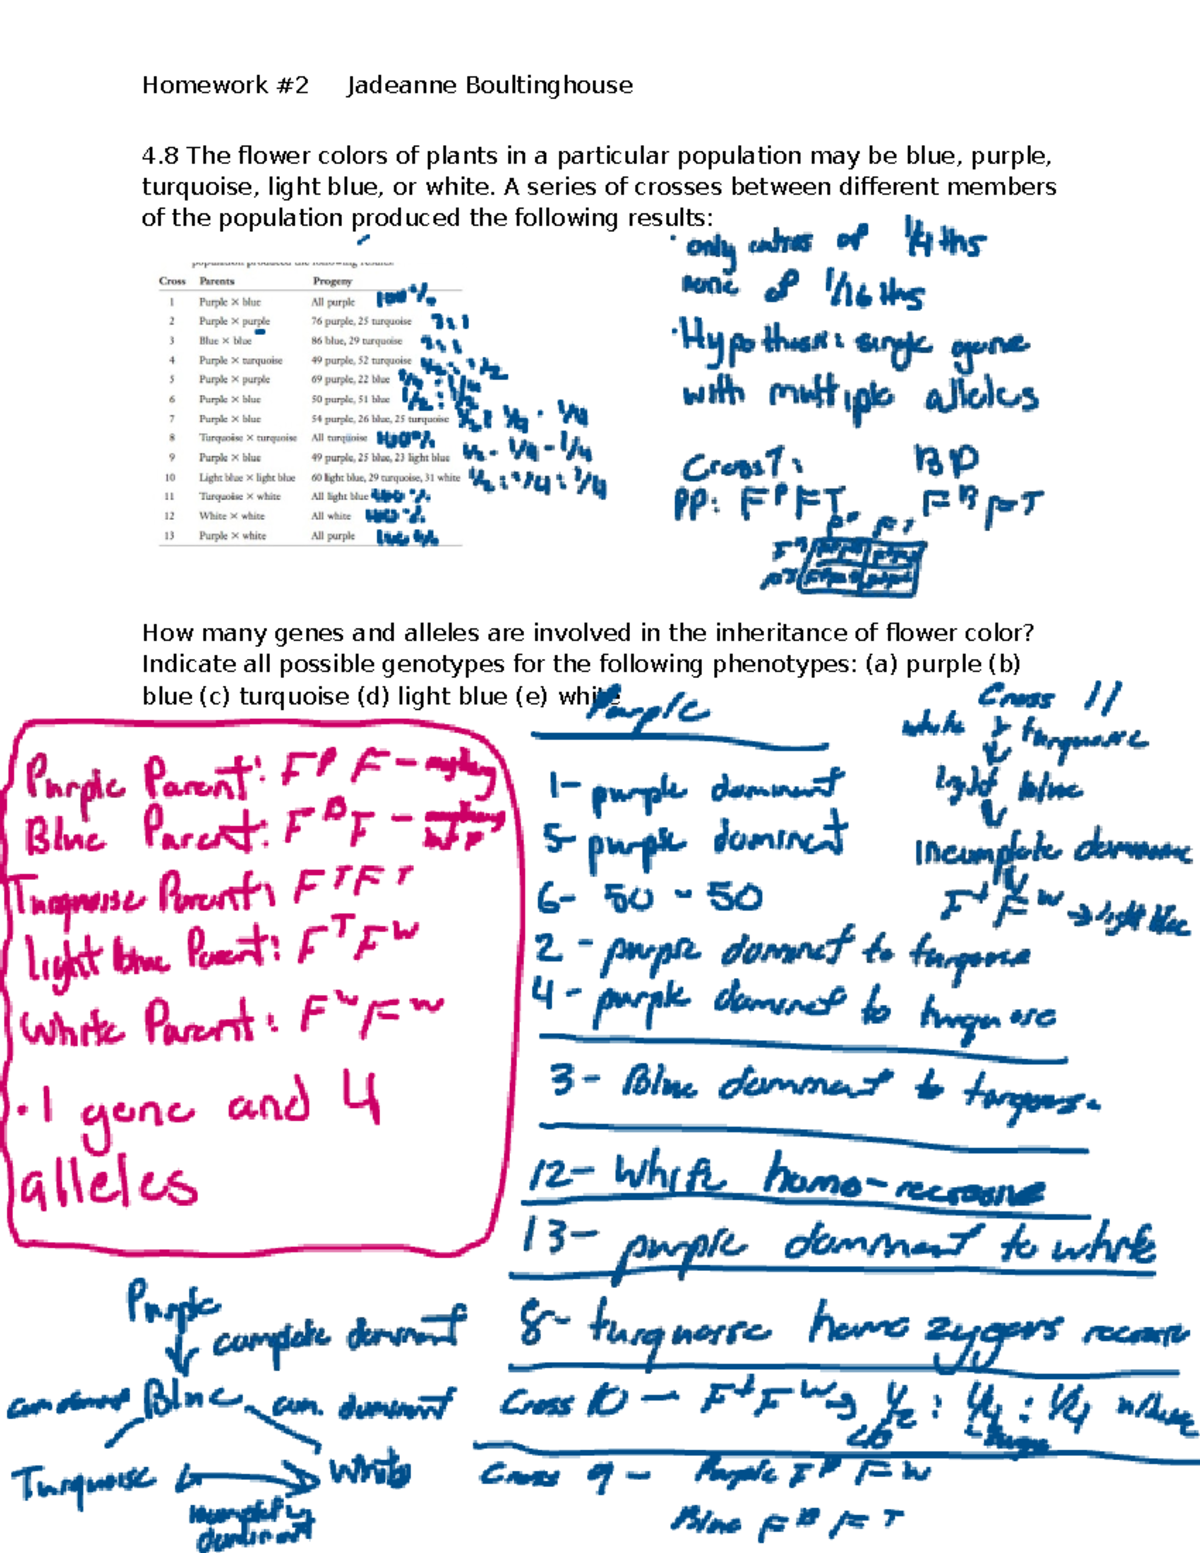 Homework #2 Jadeanne Boultinghouse
4.8 The flower colors of plants in a particular population may be blue, purple,
turquoise, light blue, or white. A series of crosses between different members
of the population produced the following results:
population produced the following results:
Cross Parents Progeny
1 Purple × blue All purple 100%
2 Purple × purple 76 purple, 25 turquoise 3:1
3 Blue × blue 86 blue, 29 turquoise 3:1
4 Purple × turquoise 49 purple, 52 turquoise
5 Purple × purple 69 purple, 22 blue
6 Purple × blue 50 purple, 51 blue 1/2 : 1/2
7 Purple × blue 54 purple, 26 blue, 25 turquoise
8 Turquoise × turquoise All turquoise 100%
9 Purple × blue 49 purple, 25 blue, 23 light blue 1/2 - 1/4 - 1/4
10 Light blue × light blue 60 light blue, 29 turquoise, 31 white 1/2 : 1/4 : 1/4
11 Turquoise × white All light blue 100%
12 White × white All white 100%
13 Purple × white All purple 100%
· only of 1/4 ths
none of 1/16 ths
· Hypothesis: single gene
with multiple alleles
Cross 7: BP
PP: F^P F^T F^B F^T
How many genes and alleles are involved in the inheritance of flower color?
Indicate all possible genotypes for the following phenotypes: (a) purple (b)
blue (c) turquoise (d) light blue (e) white
Purple Parent: F^P F - anything
Blue Parent: F^B F - anything but P
Turquoise Parent: F^T F^T
light blue Parent: F^T F^W
White Parent: F^W F^W
· 1 gene and 4
alleles
Purple
1- purple dominant
5- purple dominent
6- 50 - 50
2 - purple dominet to turquoise
4 - purple dominet to turquoise
3 - Blue dominant to turquoise.
12- White homo-recessive
13- purple dominent to white
8- turquoise homozygous
Cross 10 - F^t F^W → 1/2 : 1/4 : 1/4 white
LB
Cross 9 - Purple F^P F^W
Blue F^B F^T
Cross 11
white × turquoise
light blue
incomplete dominance
F^t F^W → light blue
Purple
complete dominant
Blue com. dominant
Turquoise White
incompletely
dominant